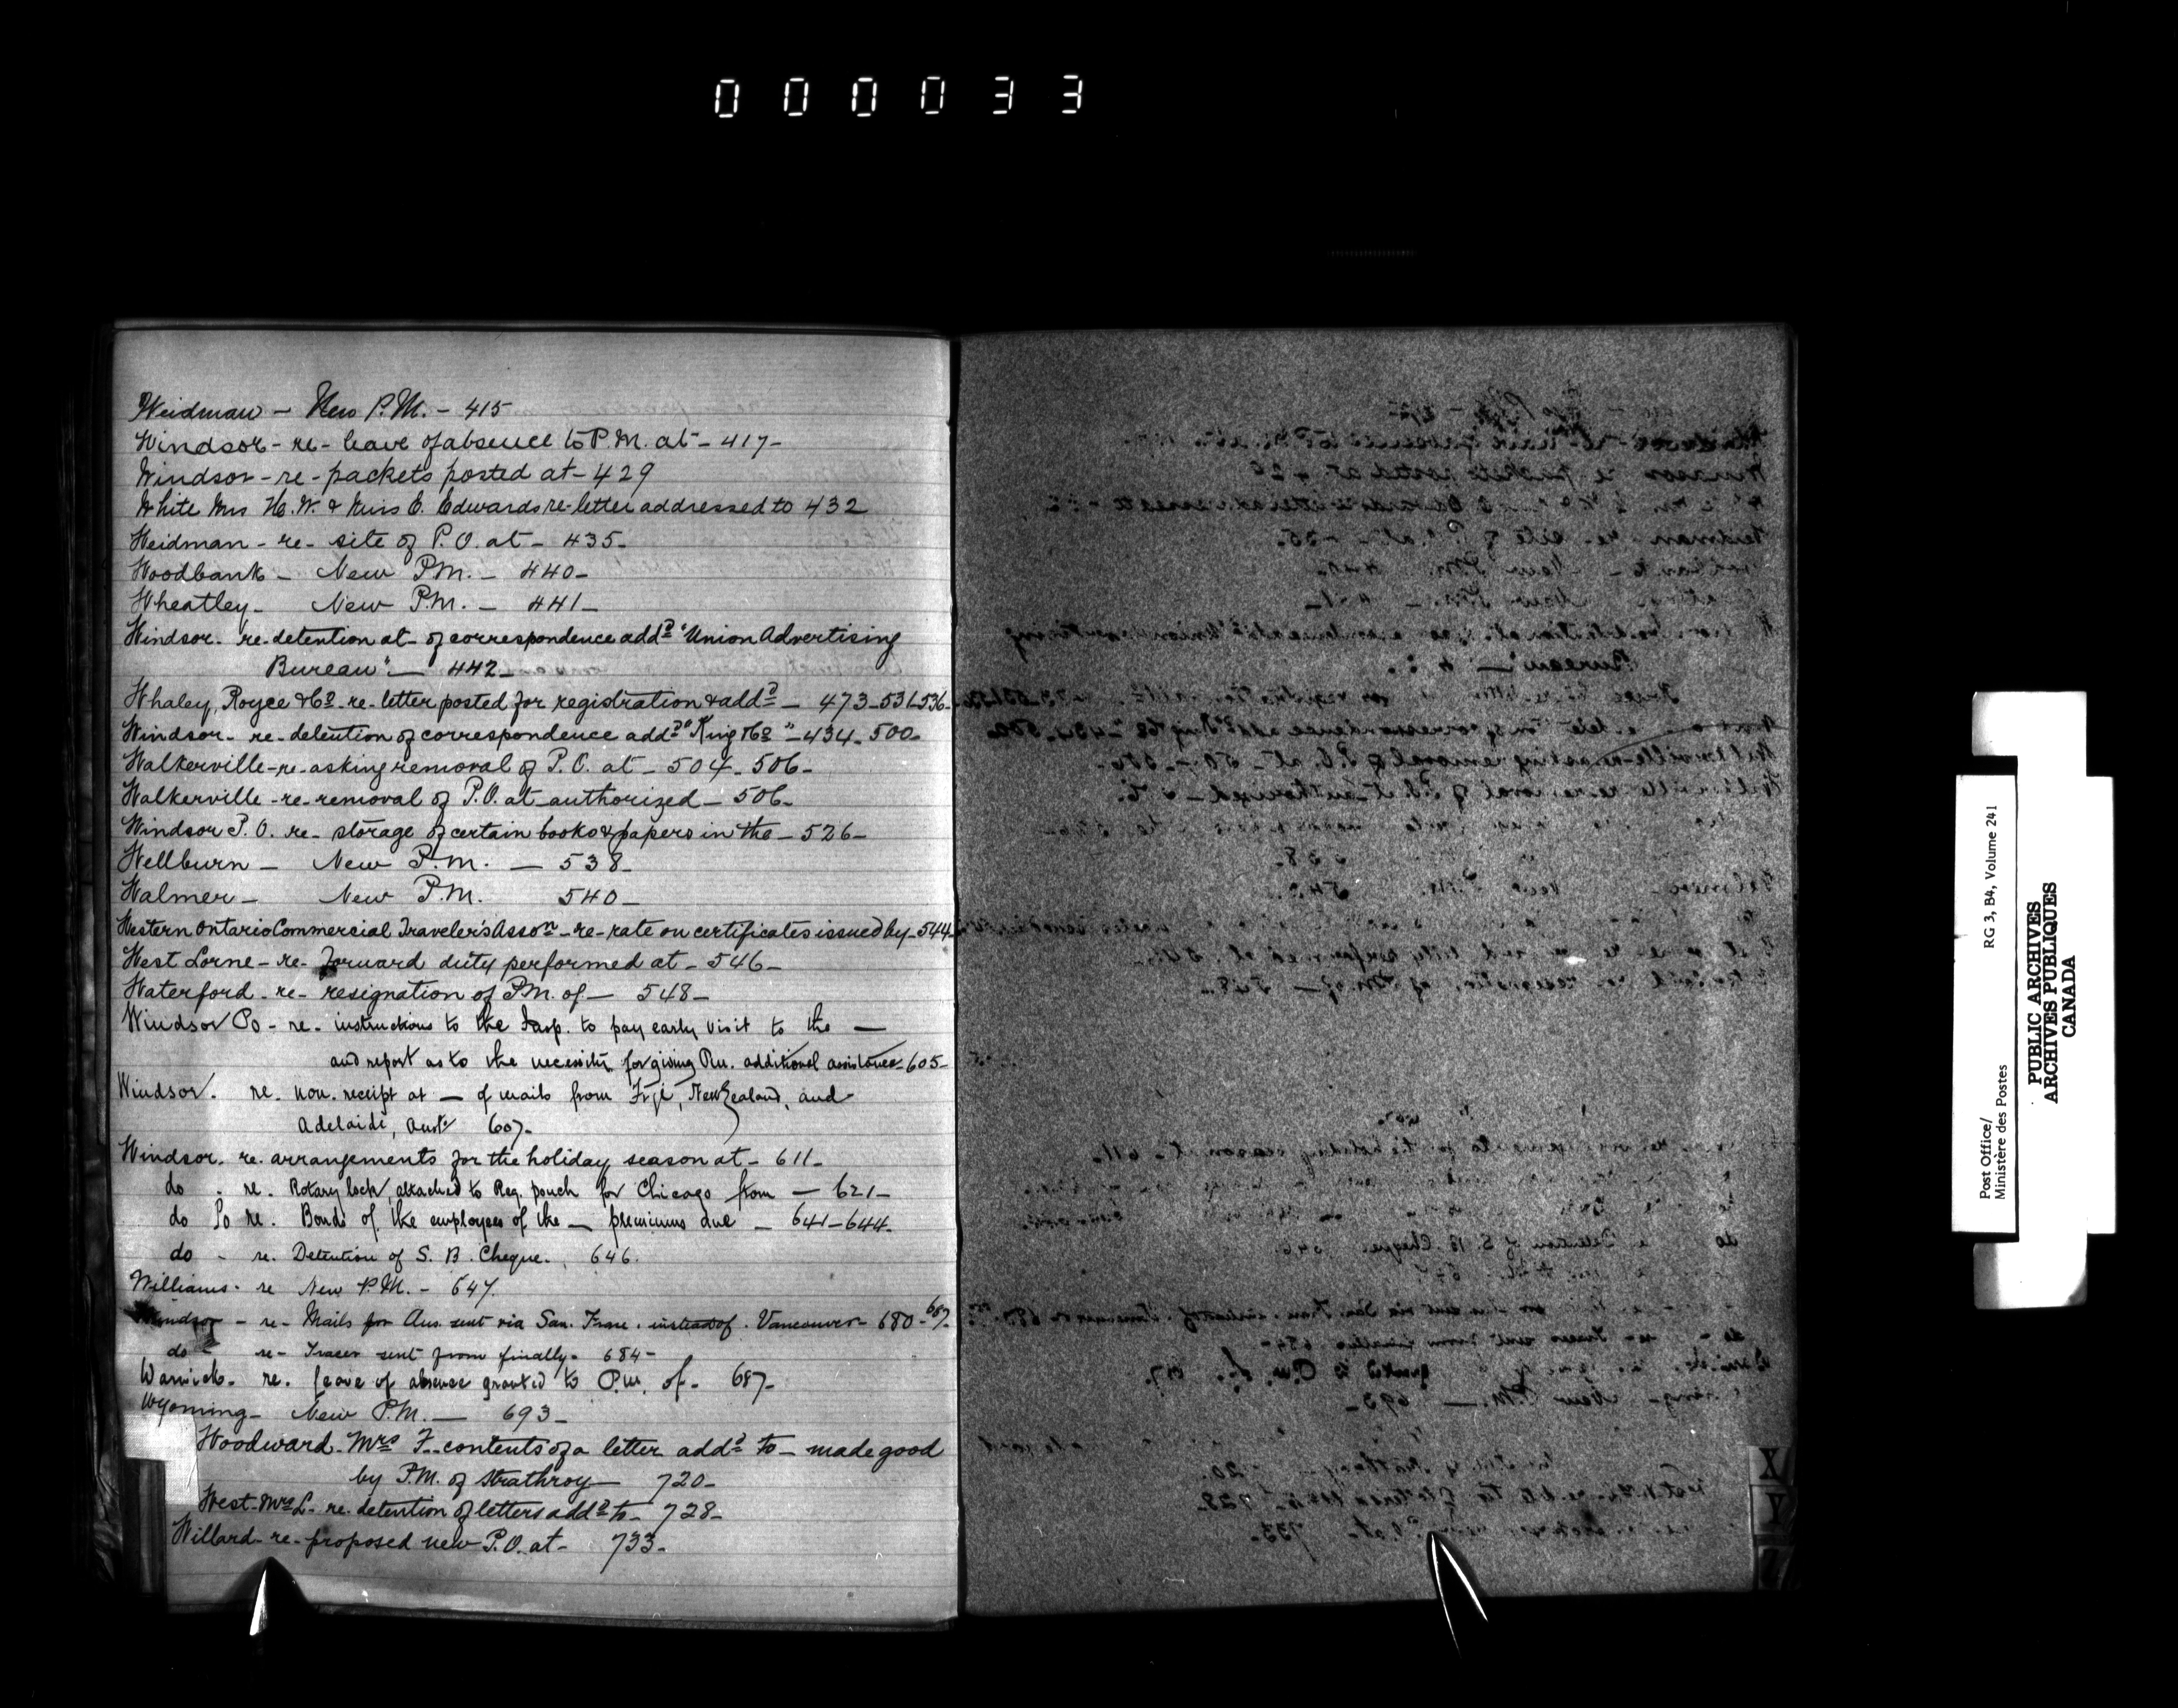 000033
Weidman - New P.M. - 415
Windsor - re - leave of absence to P.M. at - 417 -
Windsor - re - packets posted at - 429
White Mrs H. W. & Miss E. Edwards re - letter addressed to 432
Weidman - re - site of P.O. at - 435 -
Woodbank - New P.M. - 440 -
Wheatley - New P.M. - 441 -
Windsor - re - detention at - of correspondence addd "Union Advertising
Bureau" - 442 -
Whaley, Royce & Co - re - letter posted for registration & addd - 473 - 531 - 536 -
Windsor - re - detention of correspondence addd "King & Co" - 434 - 500 -
Walkerville - re - asking removal of P.O. at - 504 - 506 -
Walkerville - re - removal of P.O. at authorized - 506 -
Windsor P.O. re - storage of certain books & papers in the - 526 -
Wellburn - New P.M. - 538 -
Walmer - New P.M. 540 -
Western Ontario Commercial Traveler's Asson - re - rate on certificates issued by - 544 -
West Lorne - re - Forward duty performed at - 546 -
Waterford - re - resignation of P.M. of - 548 -
Windsor Po - re - instructions to the Insp. to pay early visit to the -
and report as to the necessity for giving Pm. additional assistance - 605 -
Windsor. re. non. receipt at - of mails from Fiji, New Zealand, and
Adelaide, Aust 607 -
Windsor - re. arrangements for the holiday season at - 611 -
do - re. Rotary lock, attached to Reg. pouch for Chicago from - 621 -
do Po re. Bonds of the employees of the - premiums due - 641 - 644 -
do - re. Detention of S. B. Cheque. 646.
Williams - re New P.M. - 647.
Windsor - re - Mails for Aus. sent via San. Fran. instead of. Vancouver - 680 - 687 -
do - re - Tracer sent from finally - 684 -
Warwick - re. leave of absence granted to P.M. of - 687 -
Wyoming - New P.M. - 693 -
Woodward - Mrs F. - contents of a letter addd to - made good
by P.M. of Strathroy - 720 -
West - Mrs L - re. detention of letters addd to - 728 -
Willard - re - proposed new P.O. at - 733 -
X
Y
Post Office/
Ministère des Postes
RG 3, B4, Volume 241
PUBLIC ARCHIVES
ARCHIVES PUBLIQUES
CANADA